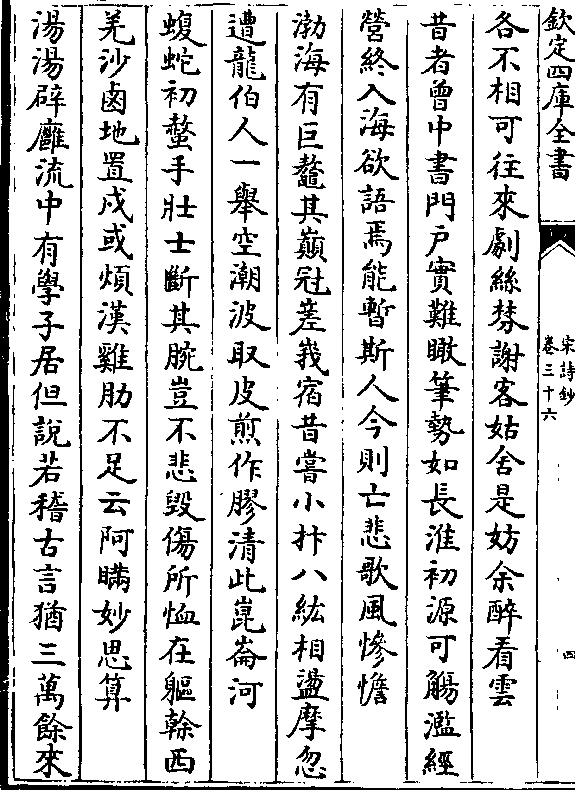 欽定四庫全書
宋詩鈔
卷三十六
四
各不相可往來劇絲棼謝客姑舍是妨余醉看雲
昔者曾中書門戶實難瞰筆勢如長淮初源可觴濫經
營終入海欲語焉能暫斯人今則亡悲歌風慘憺
渤海有巨鼇其巔冠嵳峩宿昔嘗小抃八紘相盪摩忽
遭龍伯人一舉空潮波取皮煎作膠清此崑崙河
蝮蛇初螫手壯士斷其腕豈不悲毀傷所恤在軀幹西
羌沙鹵地置戍或煩漢雞肋不足云阿瞞妙思算
湯湯辟廱流中有學子居但說若稽古言猶三萬餘來